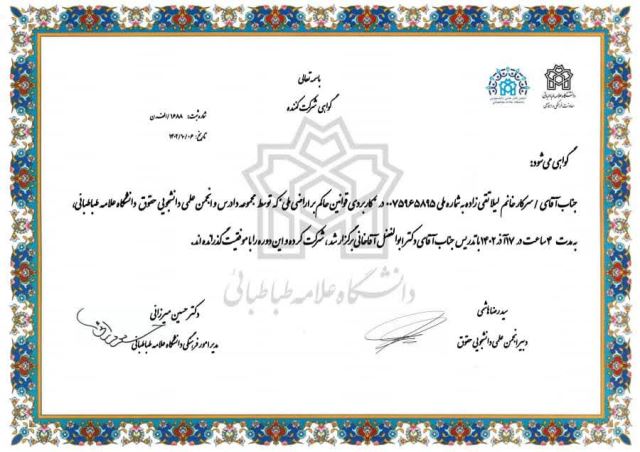 باسمه تعالی
گواهی شرکت کننده
دانشگاه علامه طباطبائی
شماره ثبت: ۱۶۸۸/الف‌د‌ن
تاریخ: ۱۴۰۲/۱۰/۰۶
گواهی می شود:
جناب آقای / سرکار خانم لیلا تقی زاده به شماره ملی ۰۰۷۵۹۶۵۸۹۵ در «کاربردی قوانین حاکم بر اراضی ملی» که توسط مجموعه دادرس و انجمن علمی دانشجویی حقوق دانشگاه علامه طباطبائی،
به مدت ۴ ساعت در ۱۷ آذر ۱۴۰۲ با تدریس جناب آقای دکتر ابوالفضل آقاخانی برگزار شد، شرکت کرده و این دوره را با موفقیت گذرانده اند.
دانشگاه علامه طباطبائی
سیدرضا هاشمی
دبیر انجمن علمی دانشجویی حقوق
دکتر حسین میرزائی
مدیر امور فرهنگی دانشگاه علامه طباطبائی